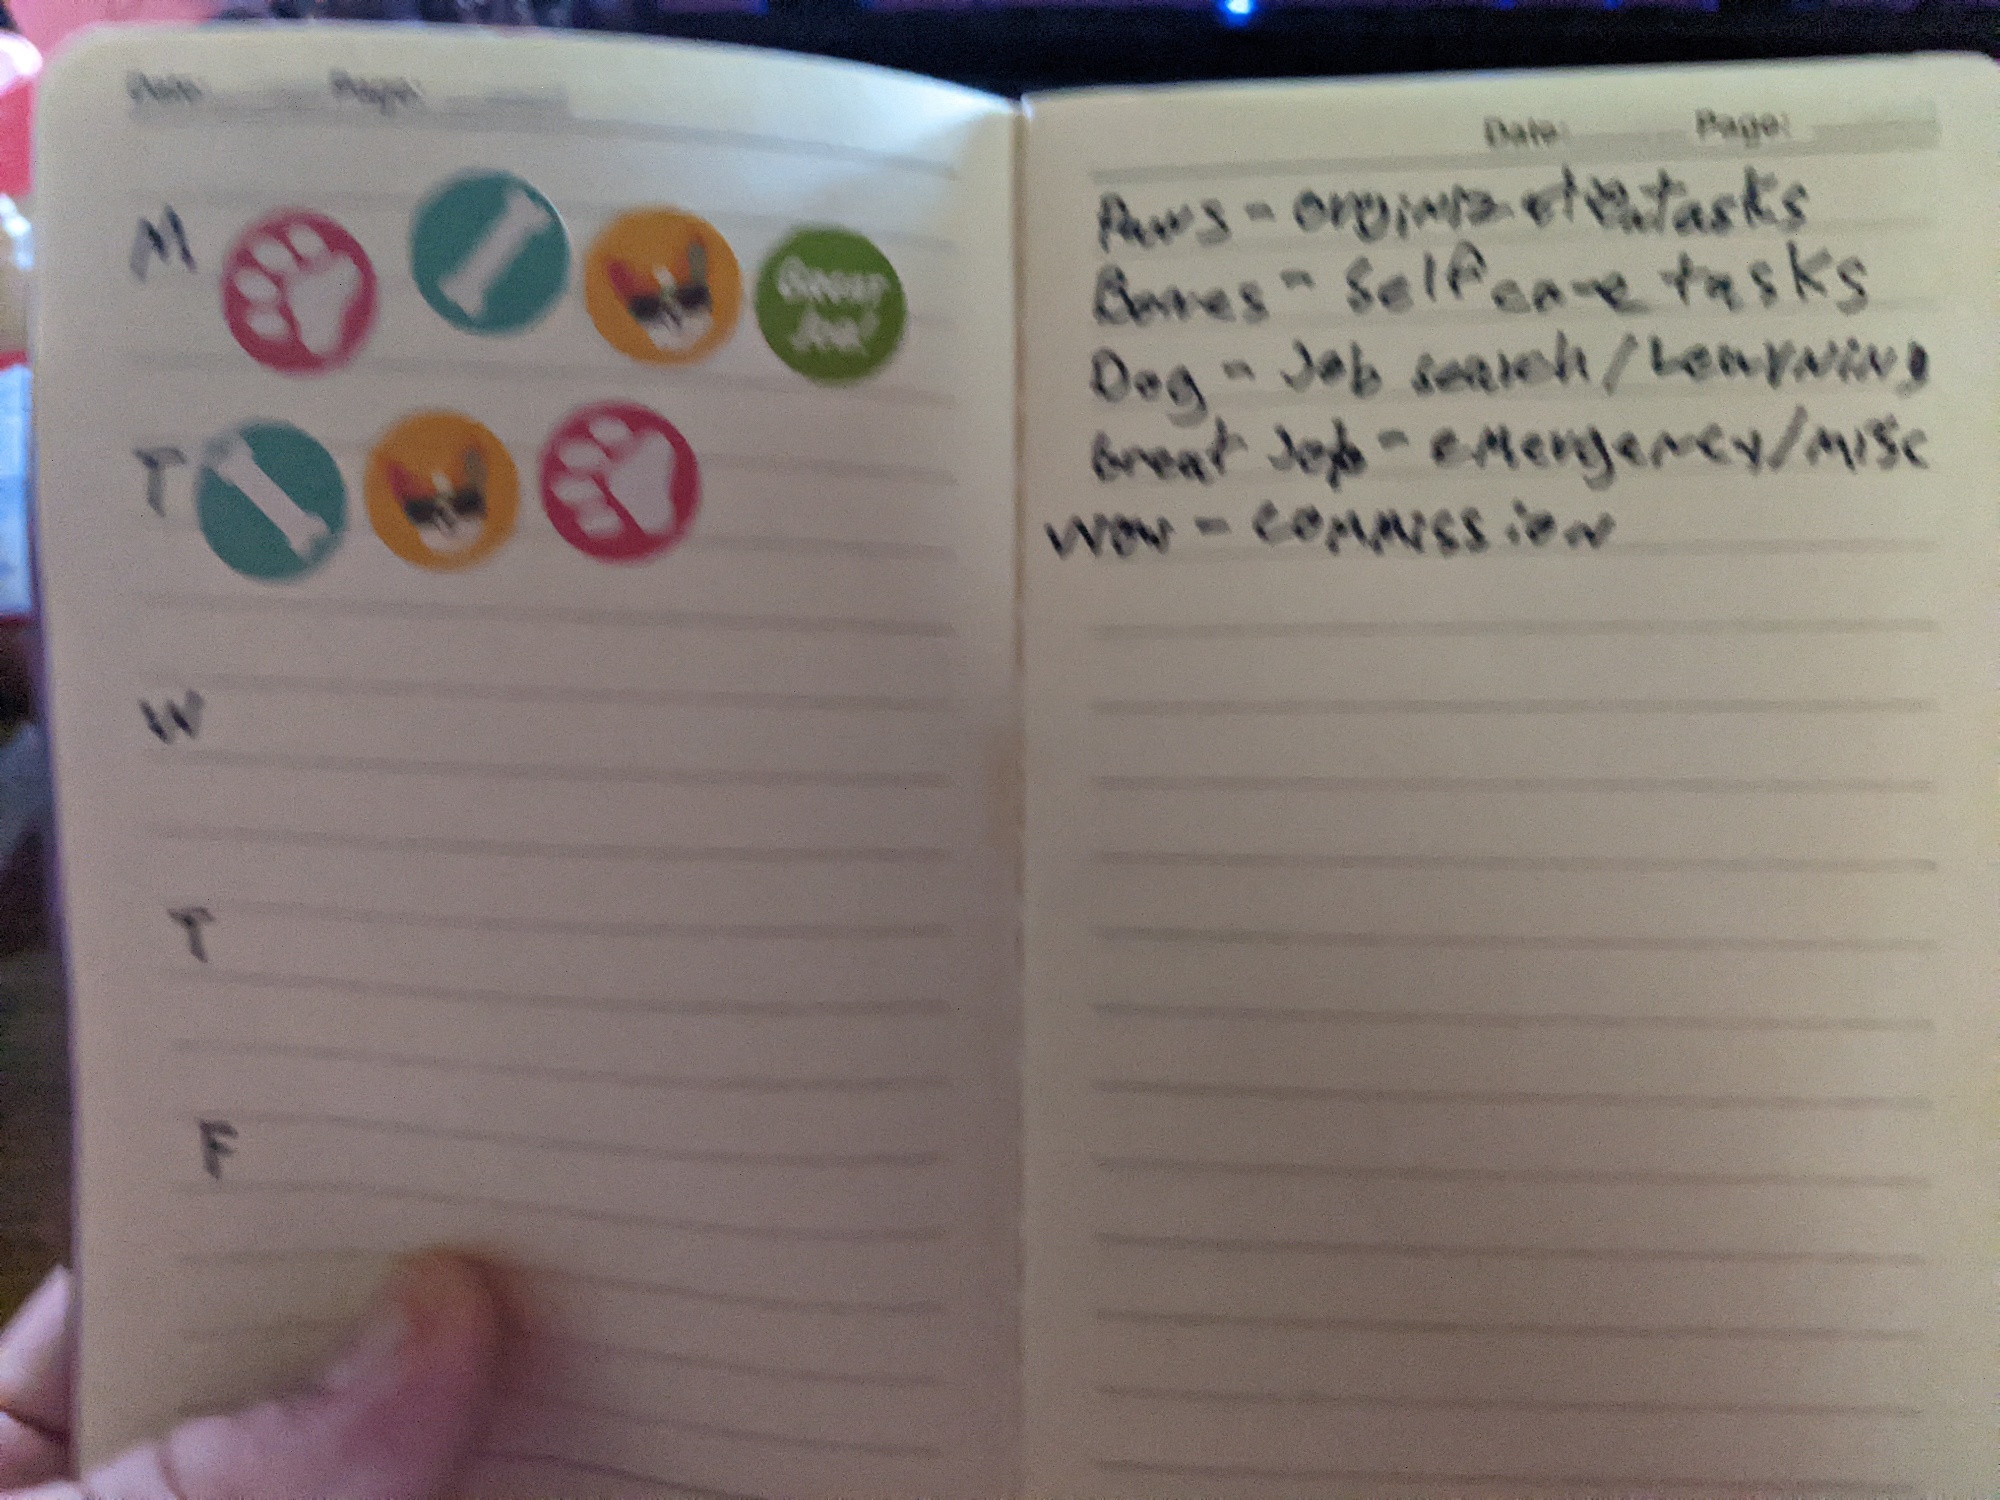 Date: Page:
M
GREAT JOB!
T
W
T
F
Date: Page:
Paws - tasks
Bones - Self care tasks
Dog - Job search/Learning
Great Job - emergency/misc
Wow - commission